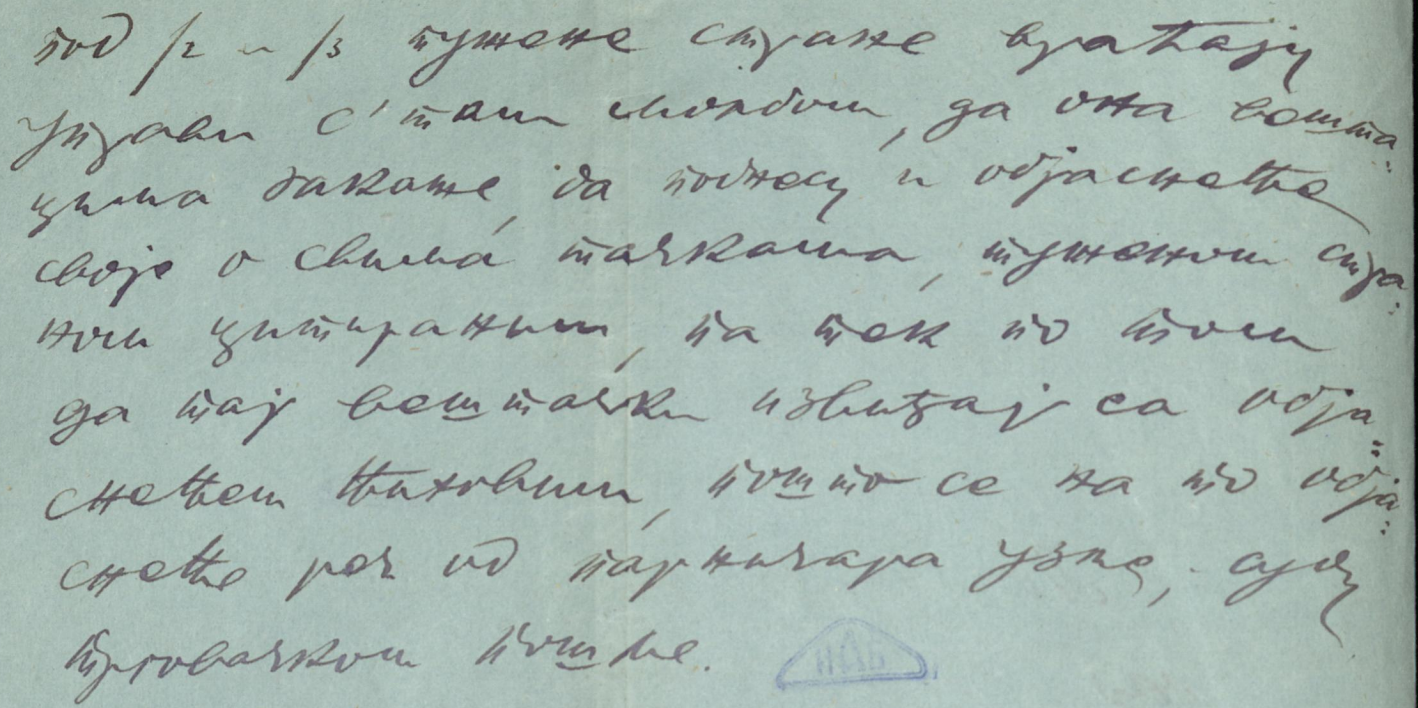 под /2 и /3 тужене стране враћају
Управи с' том молбом, да она вешта-
цима закаже, да поднесу и објасњење
своје о свима тачкама, туженом стра-
ном цитираним, па тек по том
да тај вештачки извиђај са обја=
сњењем њиховим, пошто се на то обја-
сњење реч од парничара узме, суду
трговачком пошље.
НБ